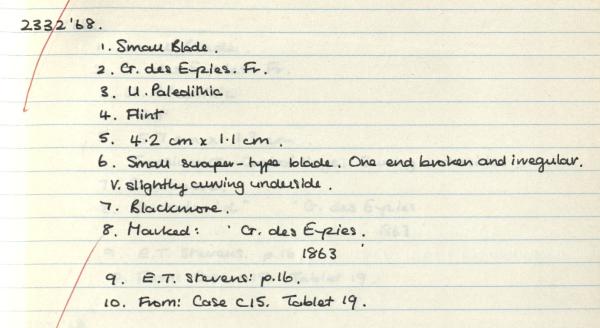 2332'68.
1. Small Blade.
2. Cr. des Eyzies. Fr.
3. U. Paleolithic
4. Flint
5. 4.2 cm x 1.1 cm.
6. Small scraper-type blade. One end broken and irregular.
V. slightly curving underside.
7. Blackmore.
8. Marked: ' Cr. des Eyzies.
1863 '
9. E.T. Stevens: p.16.
10. From: Case C15. Tablet 19.